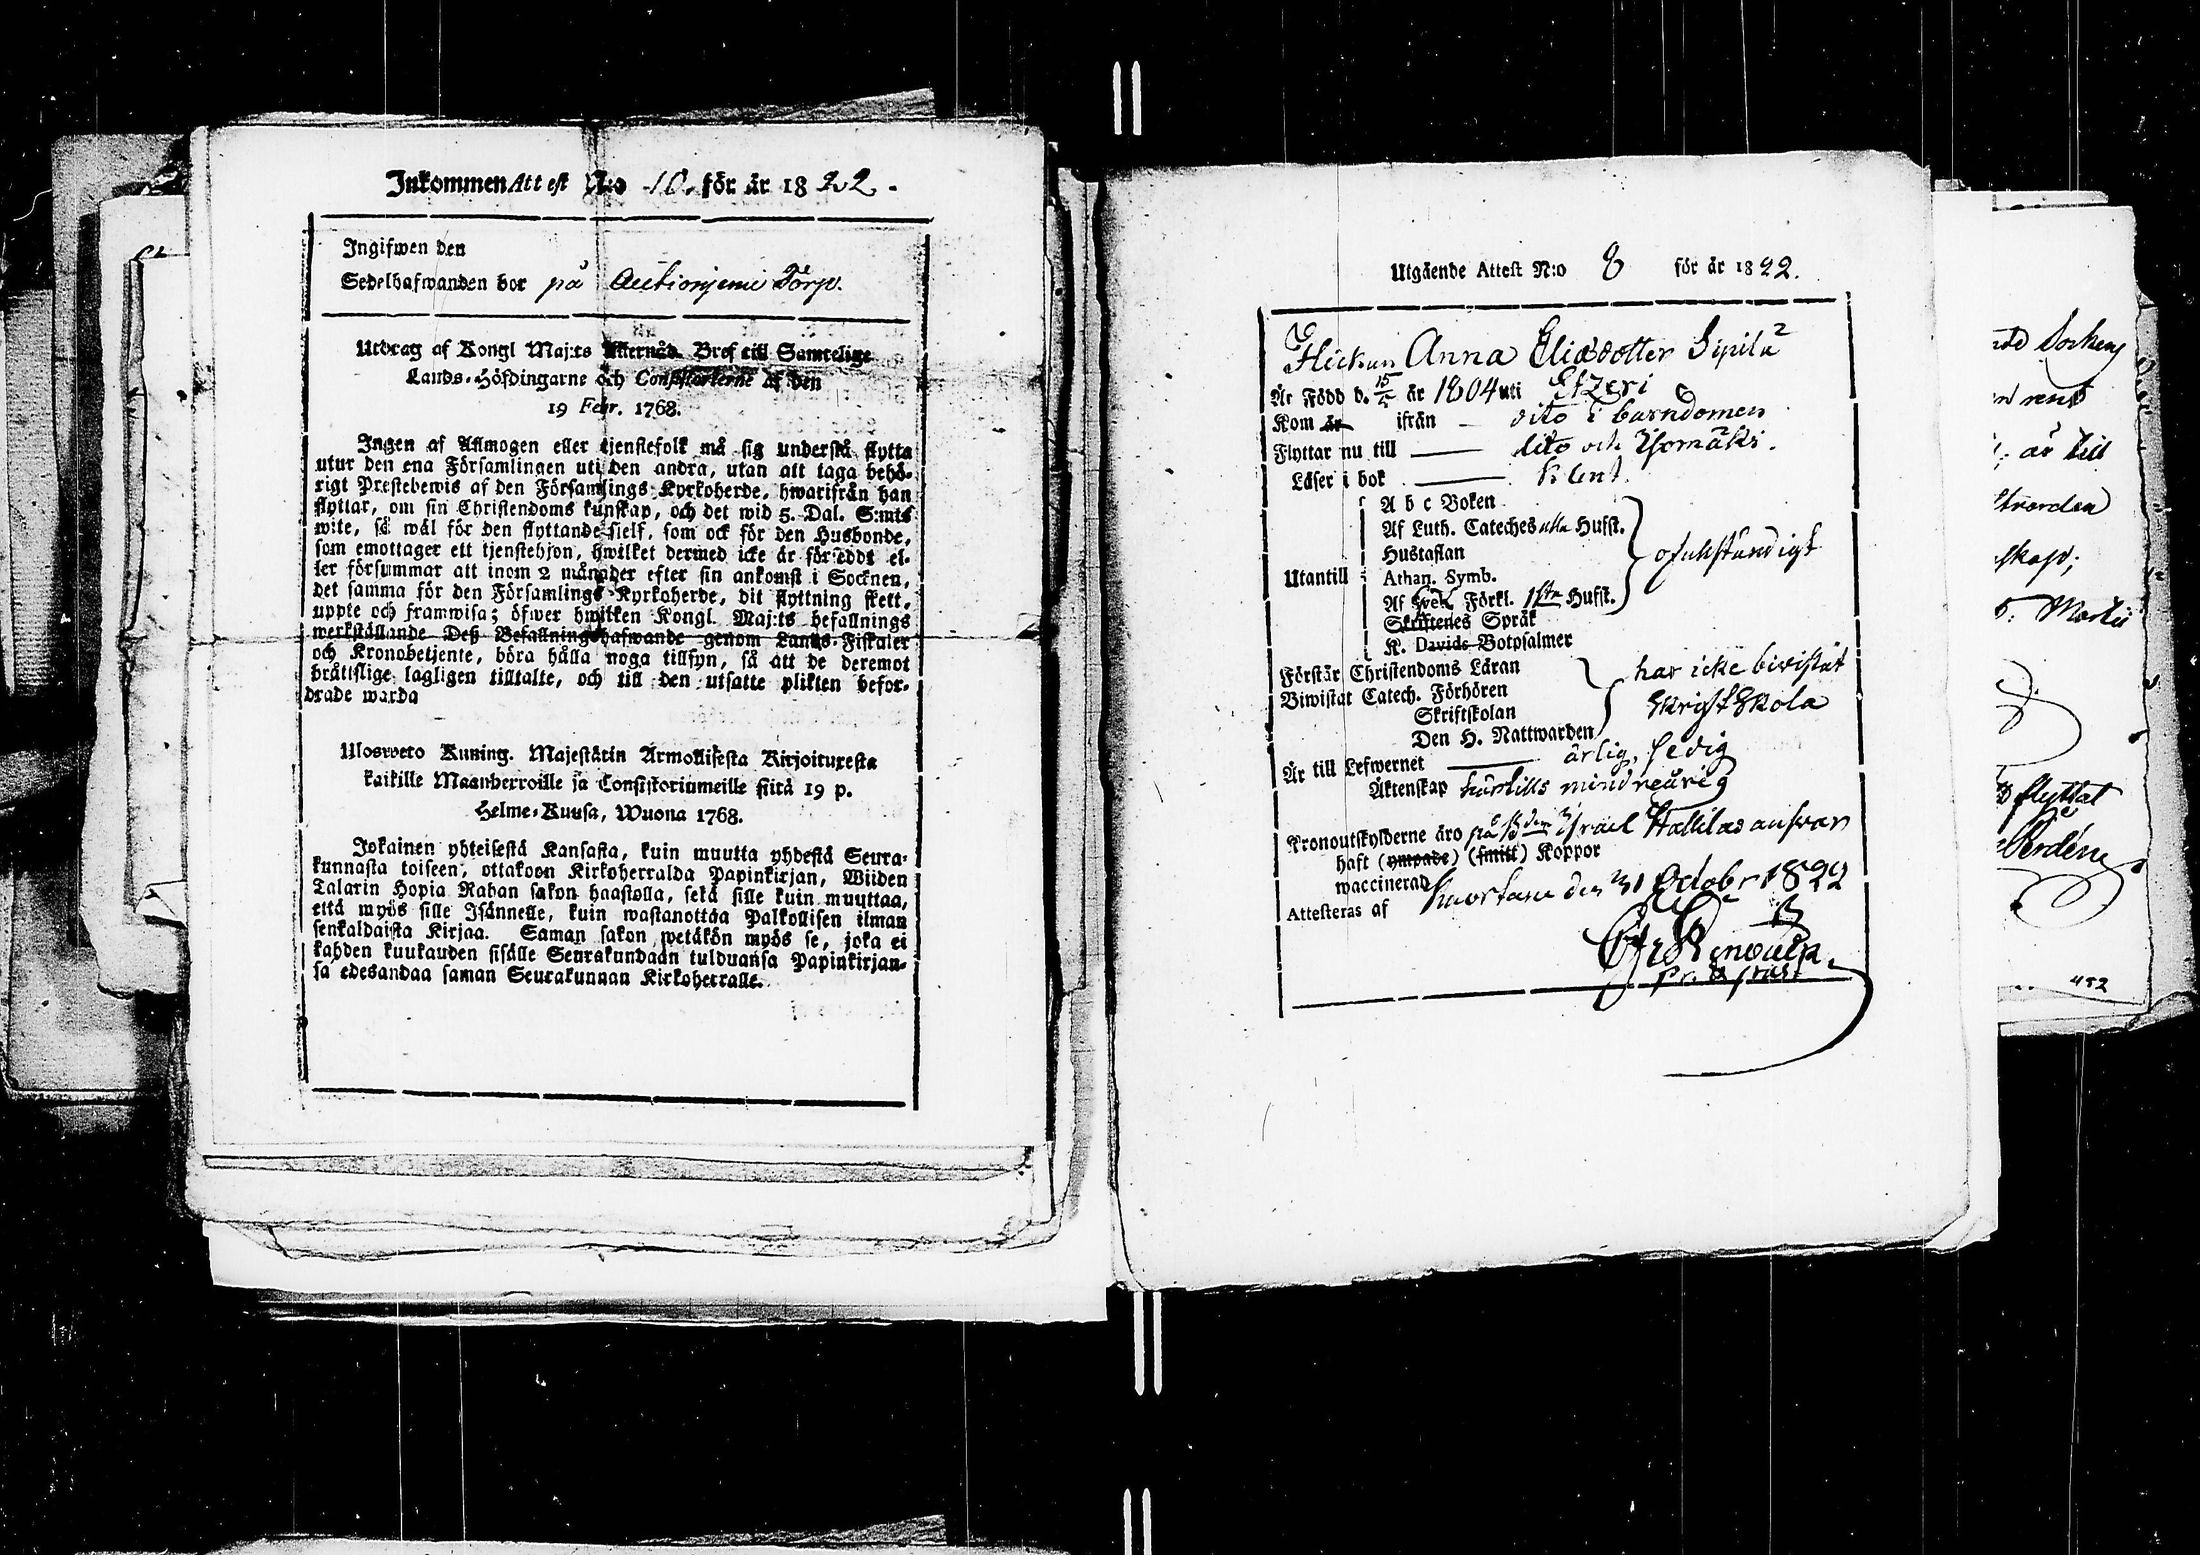 Inkommen Attest N:o 10. för år 1822.
Ingifwen den
Sedelhafwanden bor på Auctionjeni Torp.
Utdrag af Kongl Maj:ts Allernåd. Bref till Samtelige
Lands-Höfdingarne och Consistorierne af den
19 Febr. 1768.
Ingen af Allmogen eller tjenstefolk må sig understå flytta
utur den ena Församlingen uti den andra, utan att taga behö-
rigt Prestebewis af den Församlings Kyrkoherde, hwarifrån han
flyttar, om sin Christendoms kunskap, och det wid 5. Dal. S:mts
wite, så wäl för den flyttande sjelf, som ock för den Husbonde,
som emottager ett tjenstehjon, hwilket dermed icke är försedt el-
ler försummar att inom 2 månader efter sin ankomst i Socknen,
det samma för den Församlings Kyrkoherde, dit flyttning skett,
uppte och framwisa; öfwer hwilken Kongl. Maj:ts befallnings
werkställande Deß Befallningshafwande genom Lands-Fiskaler
och Kronobetjente, böra hålla noga tillsyn, så att de deremot
brätislige lagligen tilltalte, och till den utsatte plikten befor-
drade warda
Ulosweto Kuning. Majestätin Armollisesta Kirjoituxesta
kaikille Maanherroille ja Consistoriumeille siitä 19 p.
Helme-Kuusa, Wuona 1768.
Jokainen yhteisestä Kansasta, kuin muutta yhdestä Seura-
kunnasta toiseen, ottakoon Kirkoherralda Papinkirjan, Wiiden
Talarin Hopia Rahan sakon haastolla, sekä sille kuin muuttaa,
että myös sille Isännelle, kuin wastanottaa Palkollisen ilman
senkaldaista Kirjaa. Saman sakon wetäkön myös se, joka ei
kahden kuukauden sisälle Seurakundaan tulduansa Papinkirjan-
sa edesandaa saman Seurakunnan Kirkoherralle.
Utgående Attest N:o 8 för år 1822.
Flickan Anna Eliædotter Sipilä
Är Född d. 15/5 år 1804 uti Etzeri
Kom år ifrån — dito i barndomen
Flyttar nu till — dito och
Läser i bok — klent.
A b c Boken
Af Luth. Cateches utan Hufst.
Hustaflan
Utantill Athan. Symb. ofulständigt
Af Sveb. Förkl. 1sta Hufst.
Skriftenes Språk
K. Davids Botpsalmer
Förstår Christendoms Läran
Biwistat Catech. Förhören har icke bivistat
Skriftskolan Skriftskola
Den H. Nattwarden
Är till Lefwernet — ärlig, sedig
Äktenskap härtills mindreårig
Kronoutskylderne äro på Israel Hallilas answar
haft (ympade) (smitt) Koppor
waccinerad
Attesteras af den 31 Octobr 1822
flyttat
452